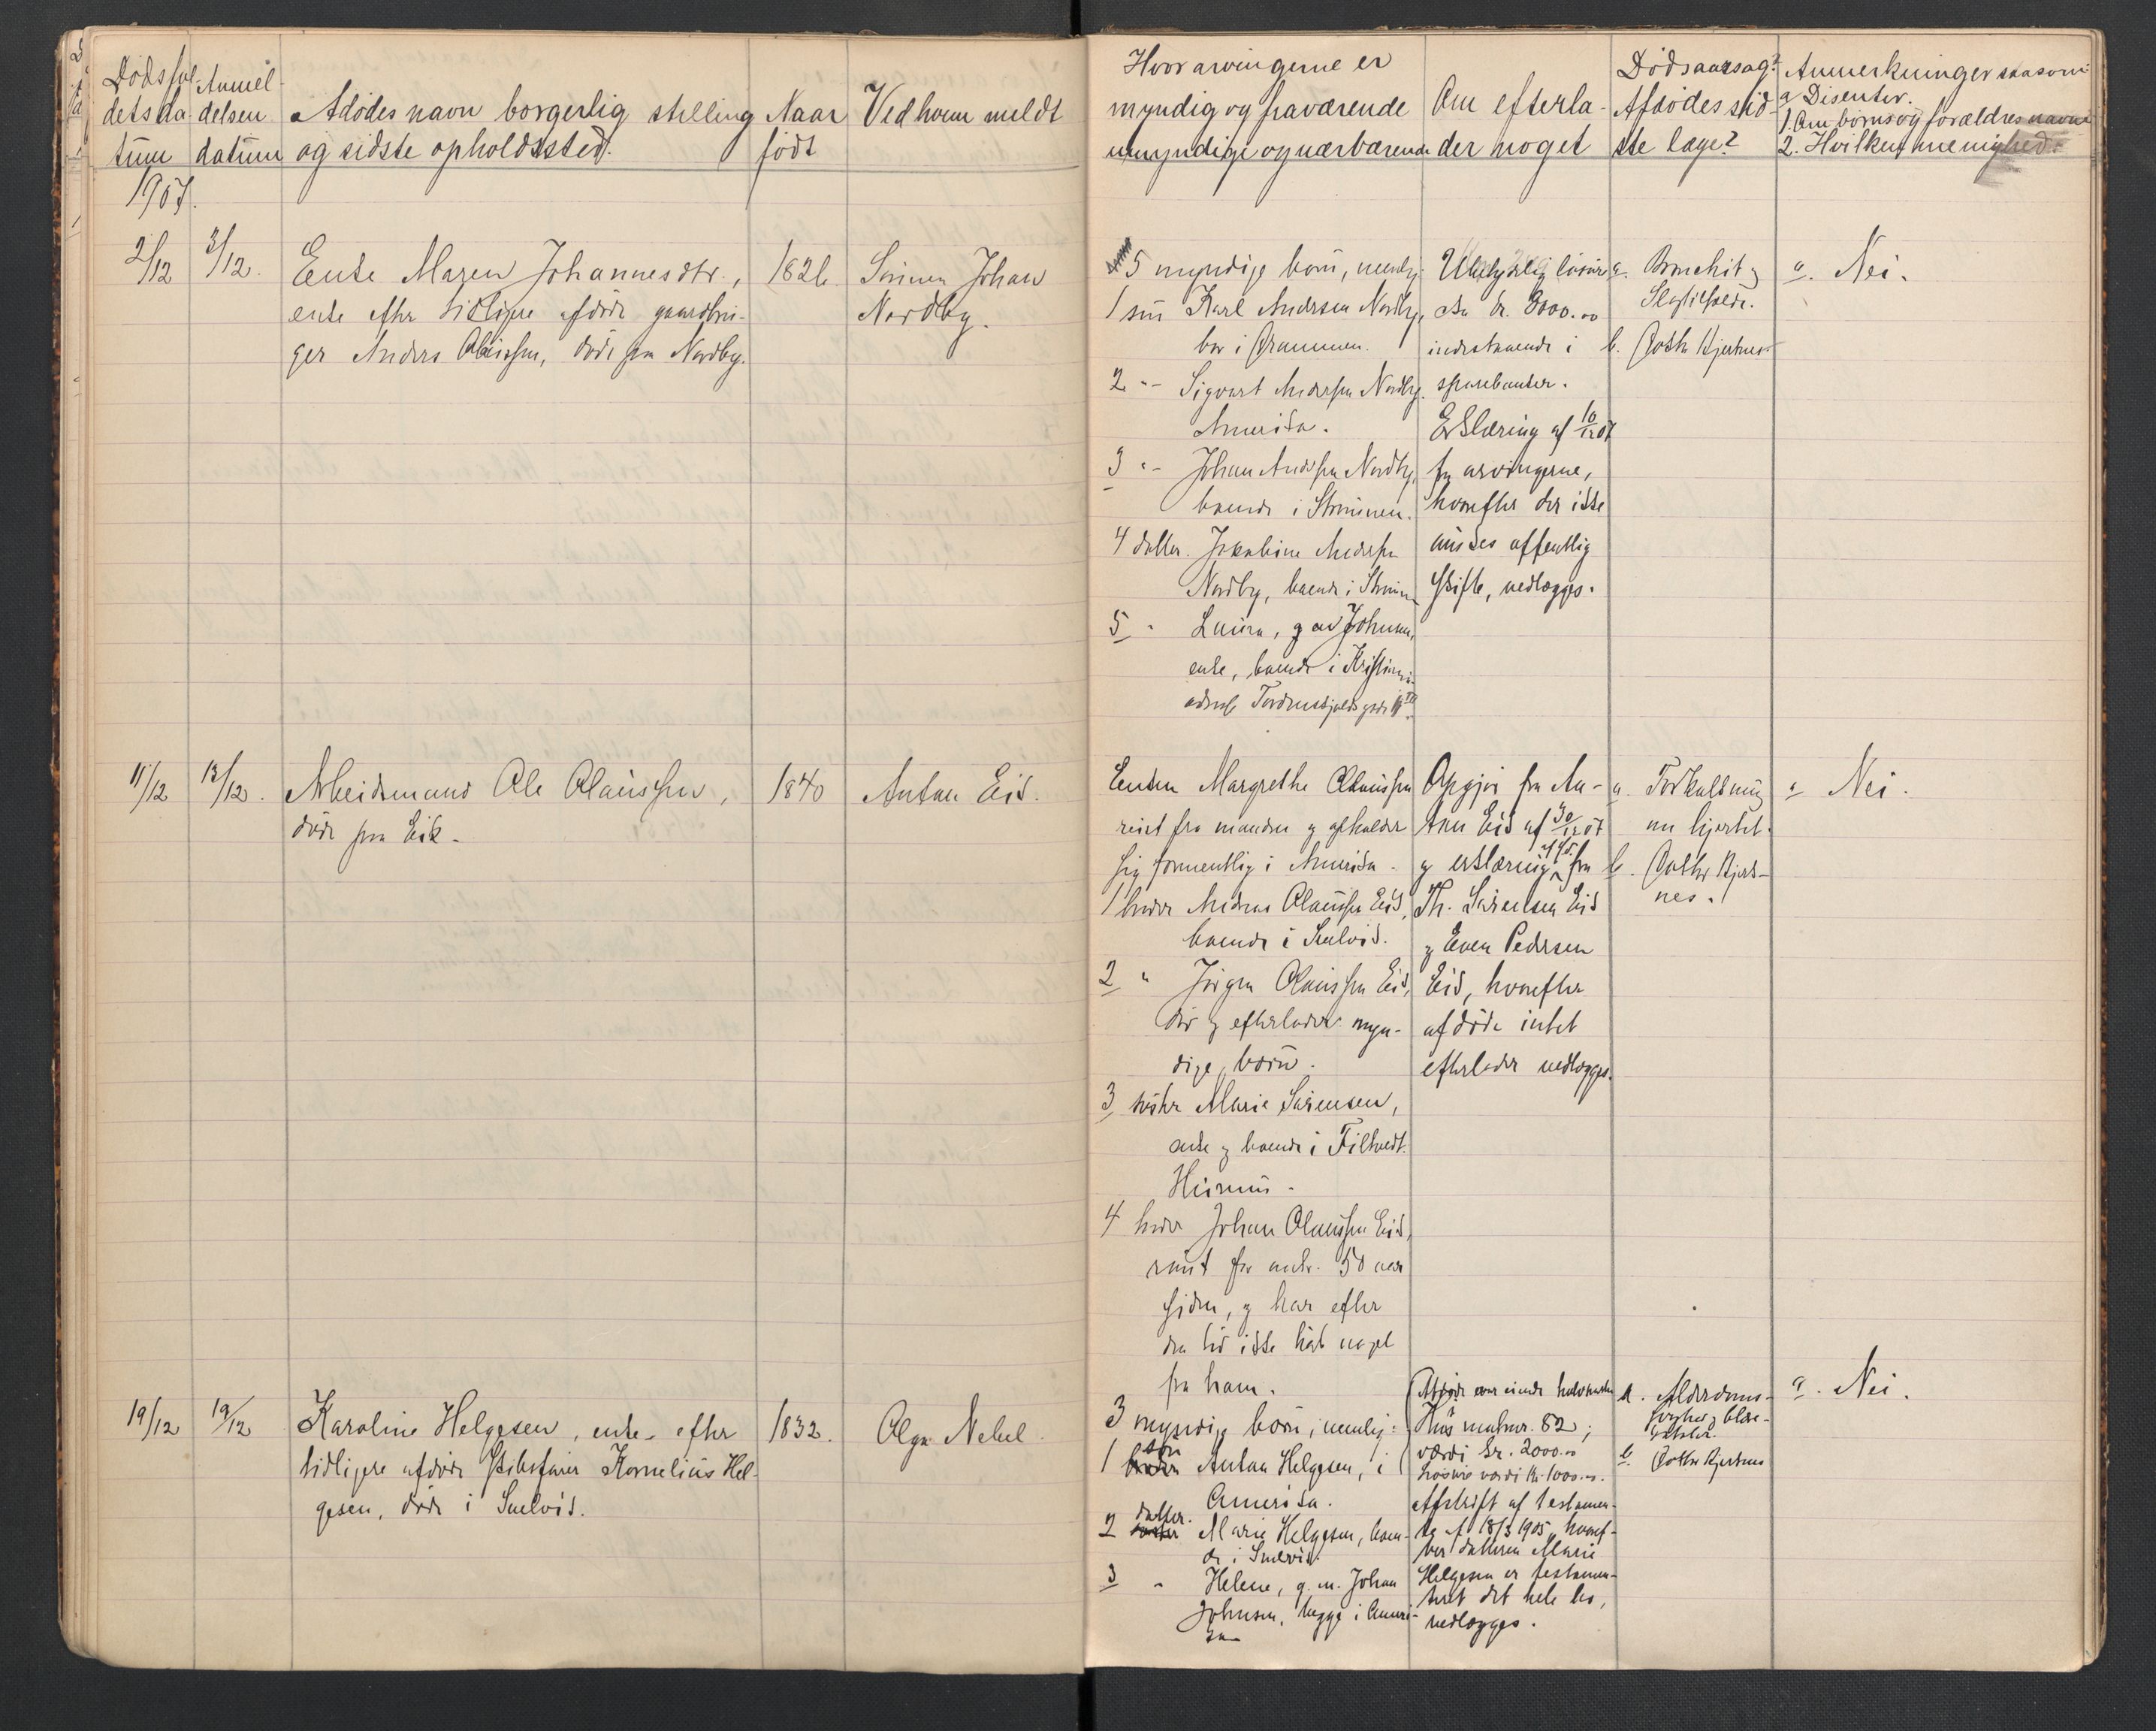 Dødsfal-
detsda-
tum
Anmel-
delsen
datum
Afdødes navn borgerlig stilling
og sidste opholdssted.
Naar
født
Ved hvem meldt
Hvor arvingerne er
myndig og fraværende
umyndige og nærværende
Om efterla-
der noget
Dødsaarsag?
Afdødes sid-
ste læge?
Anmerkninger saasom:
a Disenter.
1. Om børns og forældres navne
2. Hvilken menighed.
1907.
2/12
3/12.
Enke Maren Johannesdtr.,
enke efter tidligere afdøde gaardbru-
ger Anders Olaussen, døde paa Nordby.
1826
Simen Johan
Nordby.
5 myndige børn, nemlig:
1 søn Karl Andersen Nordby,
bor i Drammen.
2 "- Sigvart Andersen Nordby.
Amerika.
3 "- Johan Andersen Nordby,
boende i Strømmen.
4 datter. Jakobine Andersen
Nordby, boende i Strømm
5 " Laura, g av Johnsen,
enke, boende i Kristiania
adresse Tordenskjolds gade
Ubetydelig løsøre
ca kr. 8000.00
indestaaende i
sparebanker.
Erklæring af 10/12 07
fra arvingerne,
hvorefter der ikke
ønskes offentlig
skifte, vedlægges.
a. Bronchit og
Slagtilfælde.
b. Doktor Hjertnes
a. Nei.
11/12
13/12.
Arbeidsmand Ole Olaussen,
døde paa Eik.
1840
Anton Eid.
Enken Margrethe Olaussen
reist fra manden og opholder
sig formentlig i Amerika.
1 broder Andreas Olaussen Eid,
boende i Svelvik.
2 " Jørgen Olaussen Eid,
død og efterlader myn-
dige børn.
3 søster Marie Sørensen,
enke og boende i Filtvedt.
Hurum.
4 broder Johan Olaussen Eid,
reist for omtr. 50 aar
siden, og har efter
den tid ikke hørt noget
fra ham.
Opgjør fra An-
ton Eid af 30/12 07
og erklæring af s.d. fra
Th. Sørensen Eid
og Even Pedersen
Eid, hvorefter
afdøde intet
efterlader vedlægges.
a. Forkalkning
av hjertet.
b. Doktor Hjert-
nes.
a Nei.
19/12
19/12
Karoline Helgesen, enke efter
tidligere afdøde skibsfører Kornelius Hel-
gesen, døde i Svelvik.
1832.
Olga Nebel.
3 myndige børn, nemlig:
1 søn Anton Helgesen, i
Amerika.
2 datter. Marie Helgesen, boen-
de i Svelvik.
3 " Helene, g. m. Johan
Johnsen, begge i Ameri-
ka
Afdøde var eiende halvparten
Hus matnr. 82;
værdi kr. 2000.00
løsøre værdi kr. 1000.00.
Afskrift af testamen-
te af 18/3 1905, hvoref-
ter datteren Marie
Helgesen er testamen-
teret det hele bo,
vedlægges.
a. Alderdoms-
svaghed og blære-
katarr.
b. Doktor Hjertnes
a. Nei.